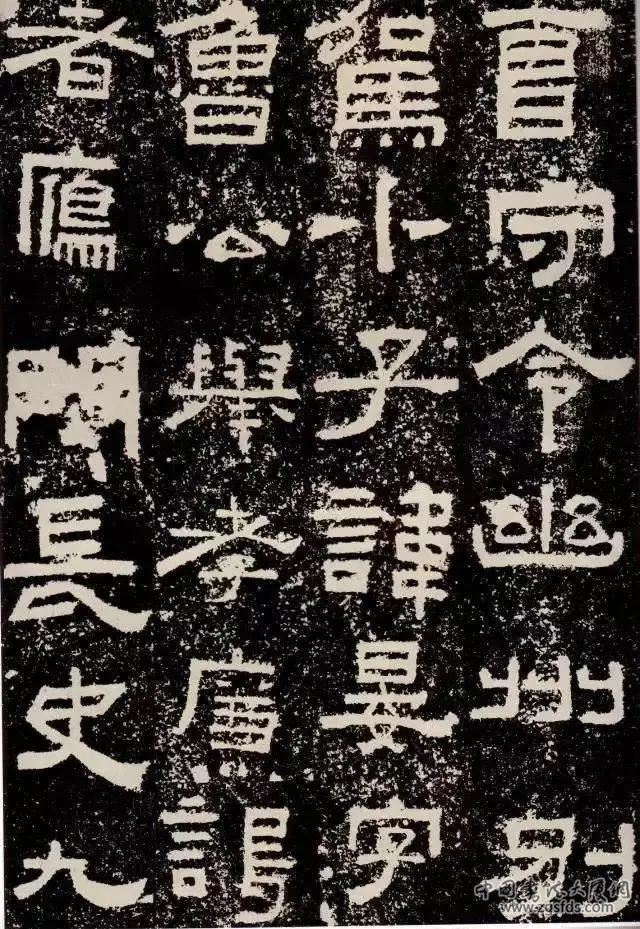 守令幽州別
駕小子諱晏字
魯公舉孝廉謁
者鴈門長史九
www.zgsfds.com